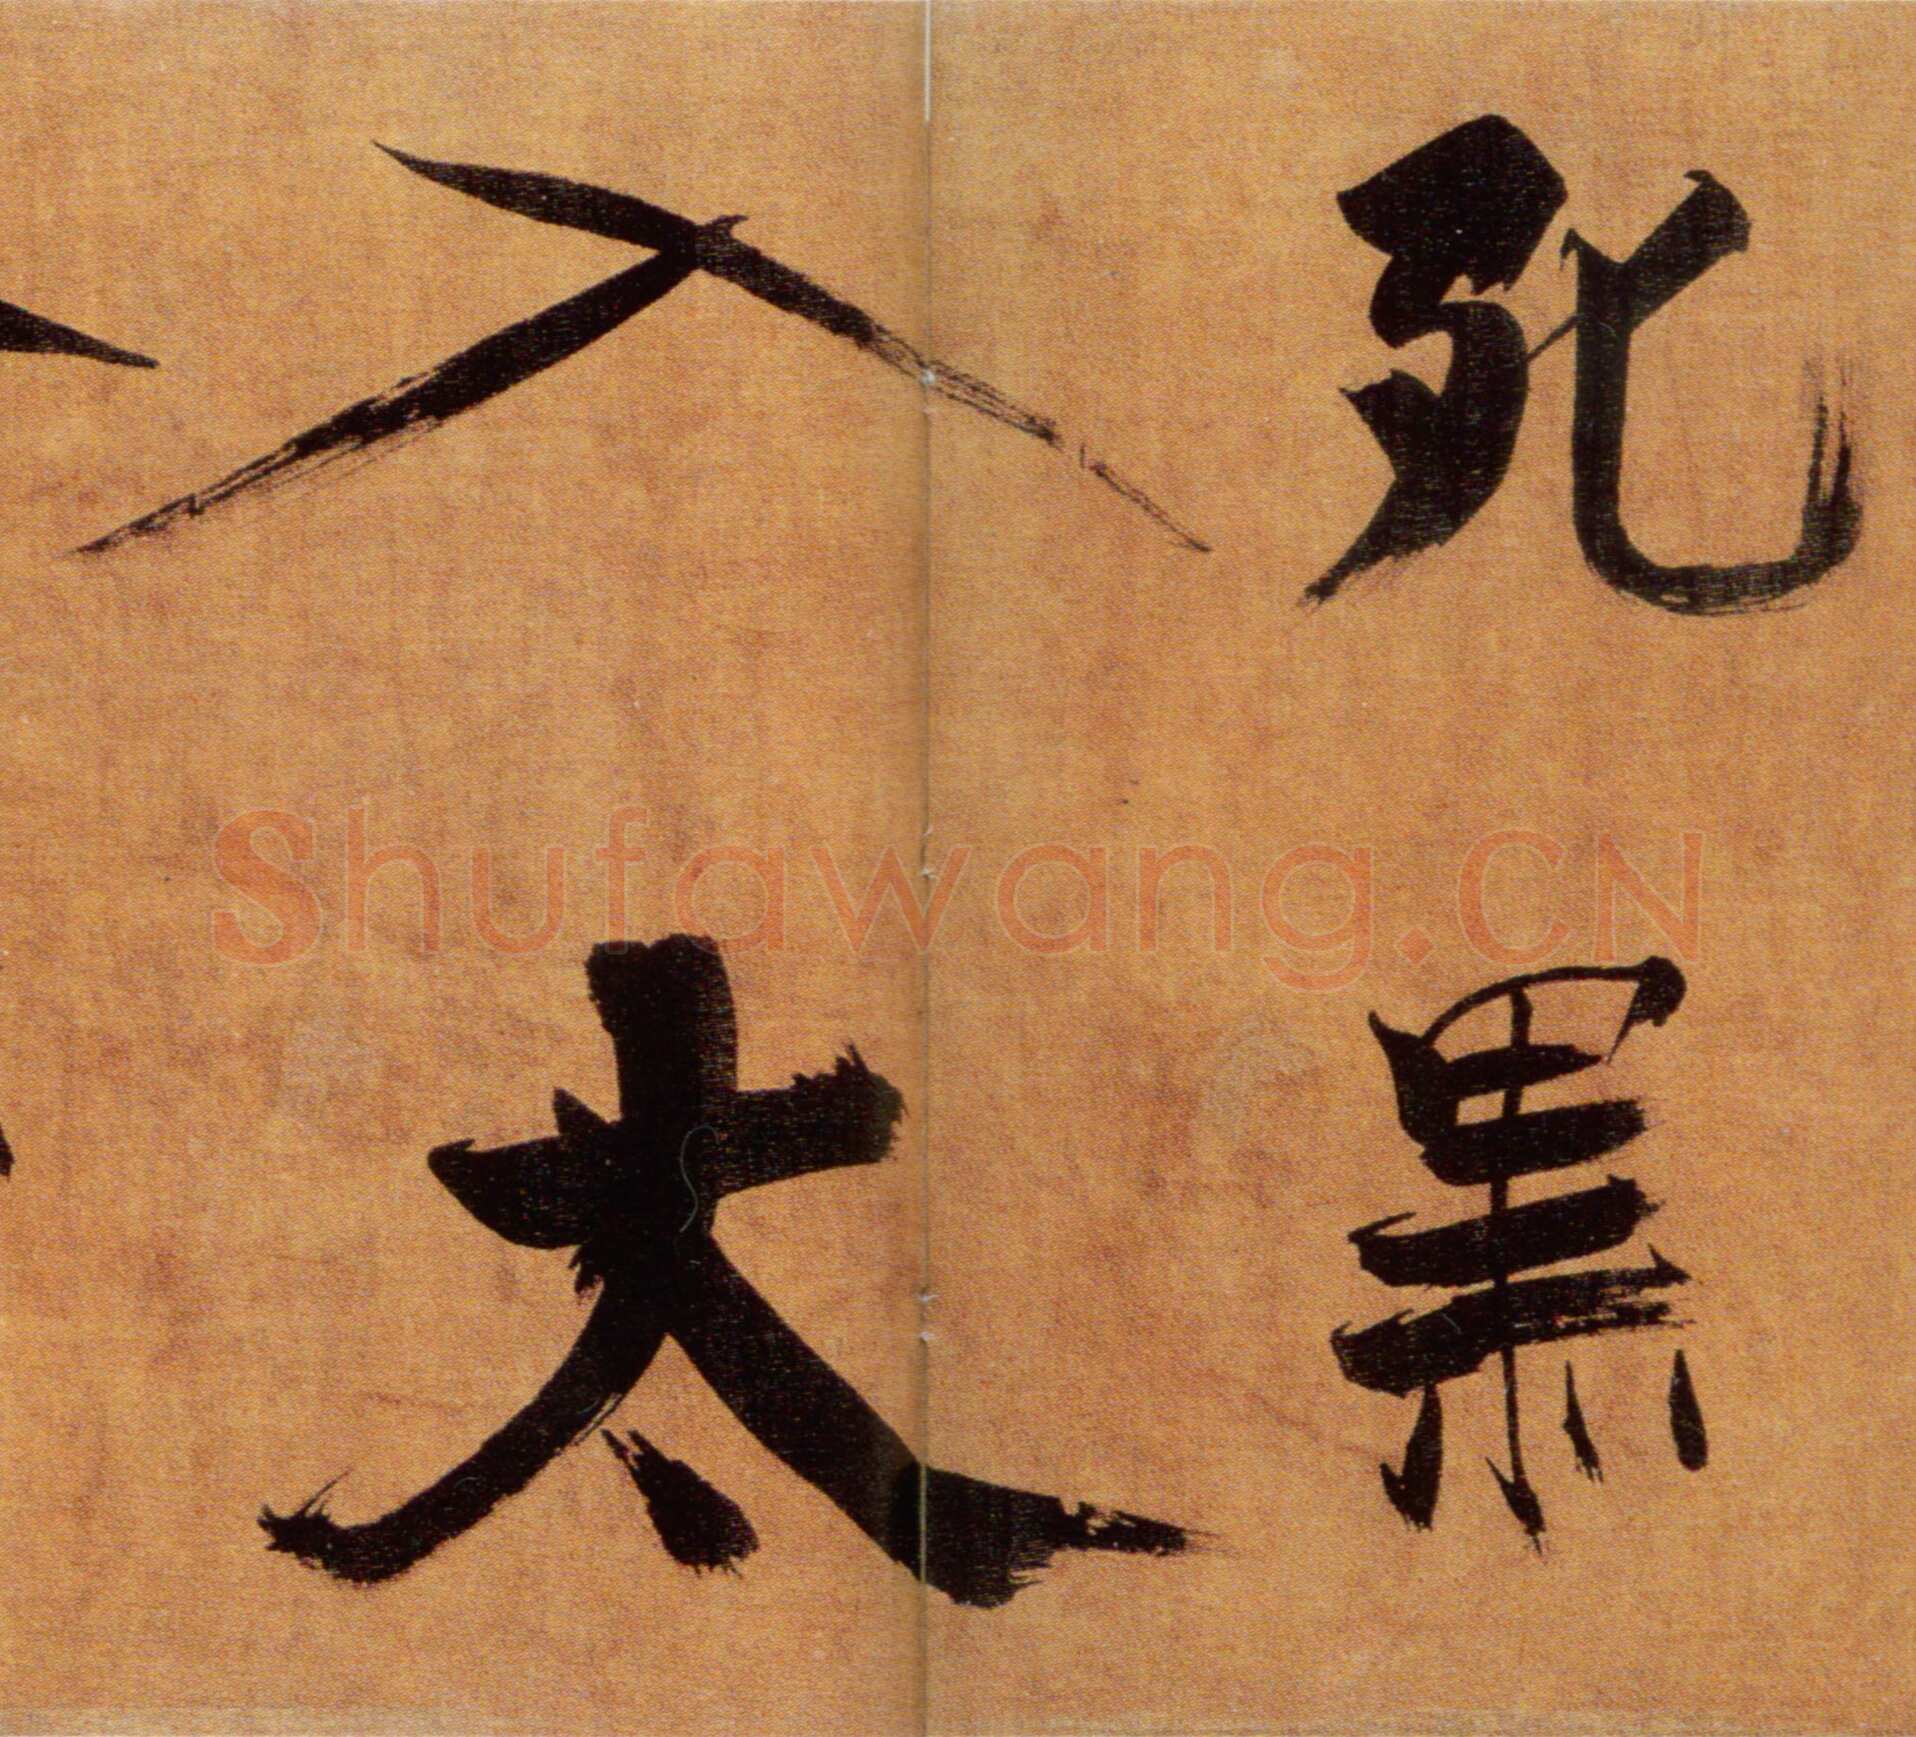 死黑
入太
Shufawang.CN